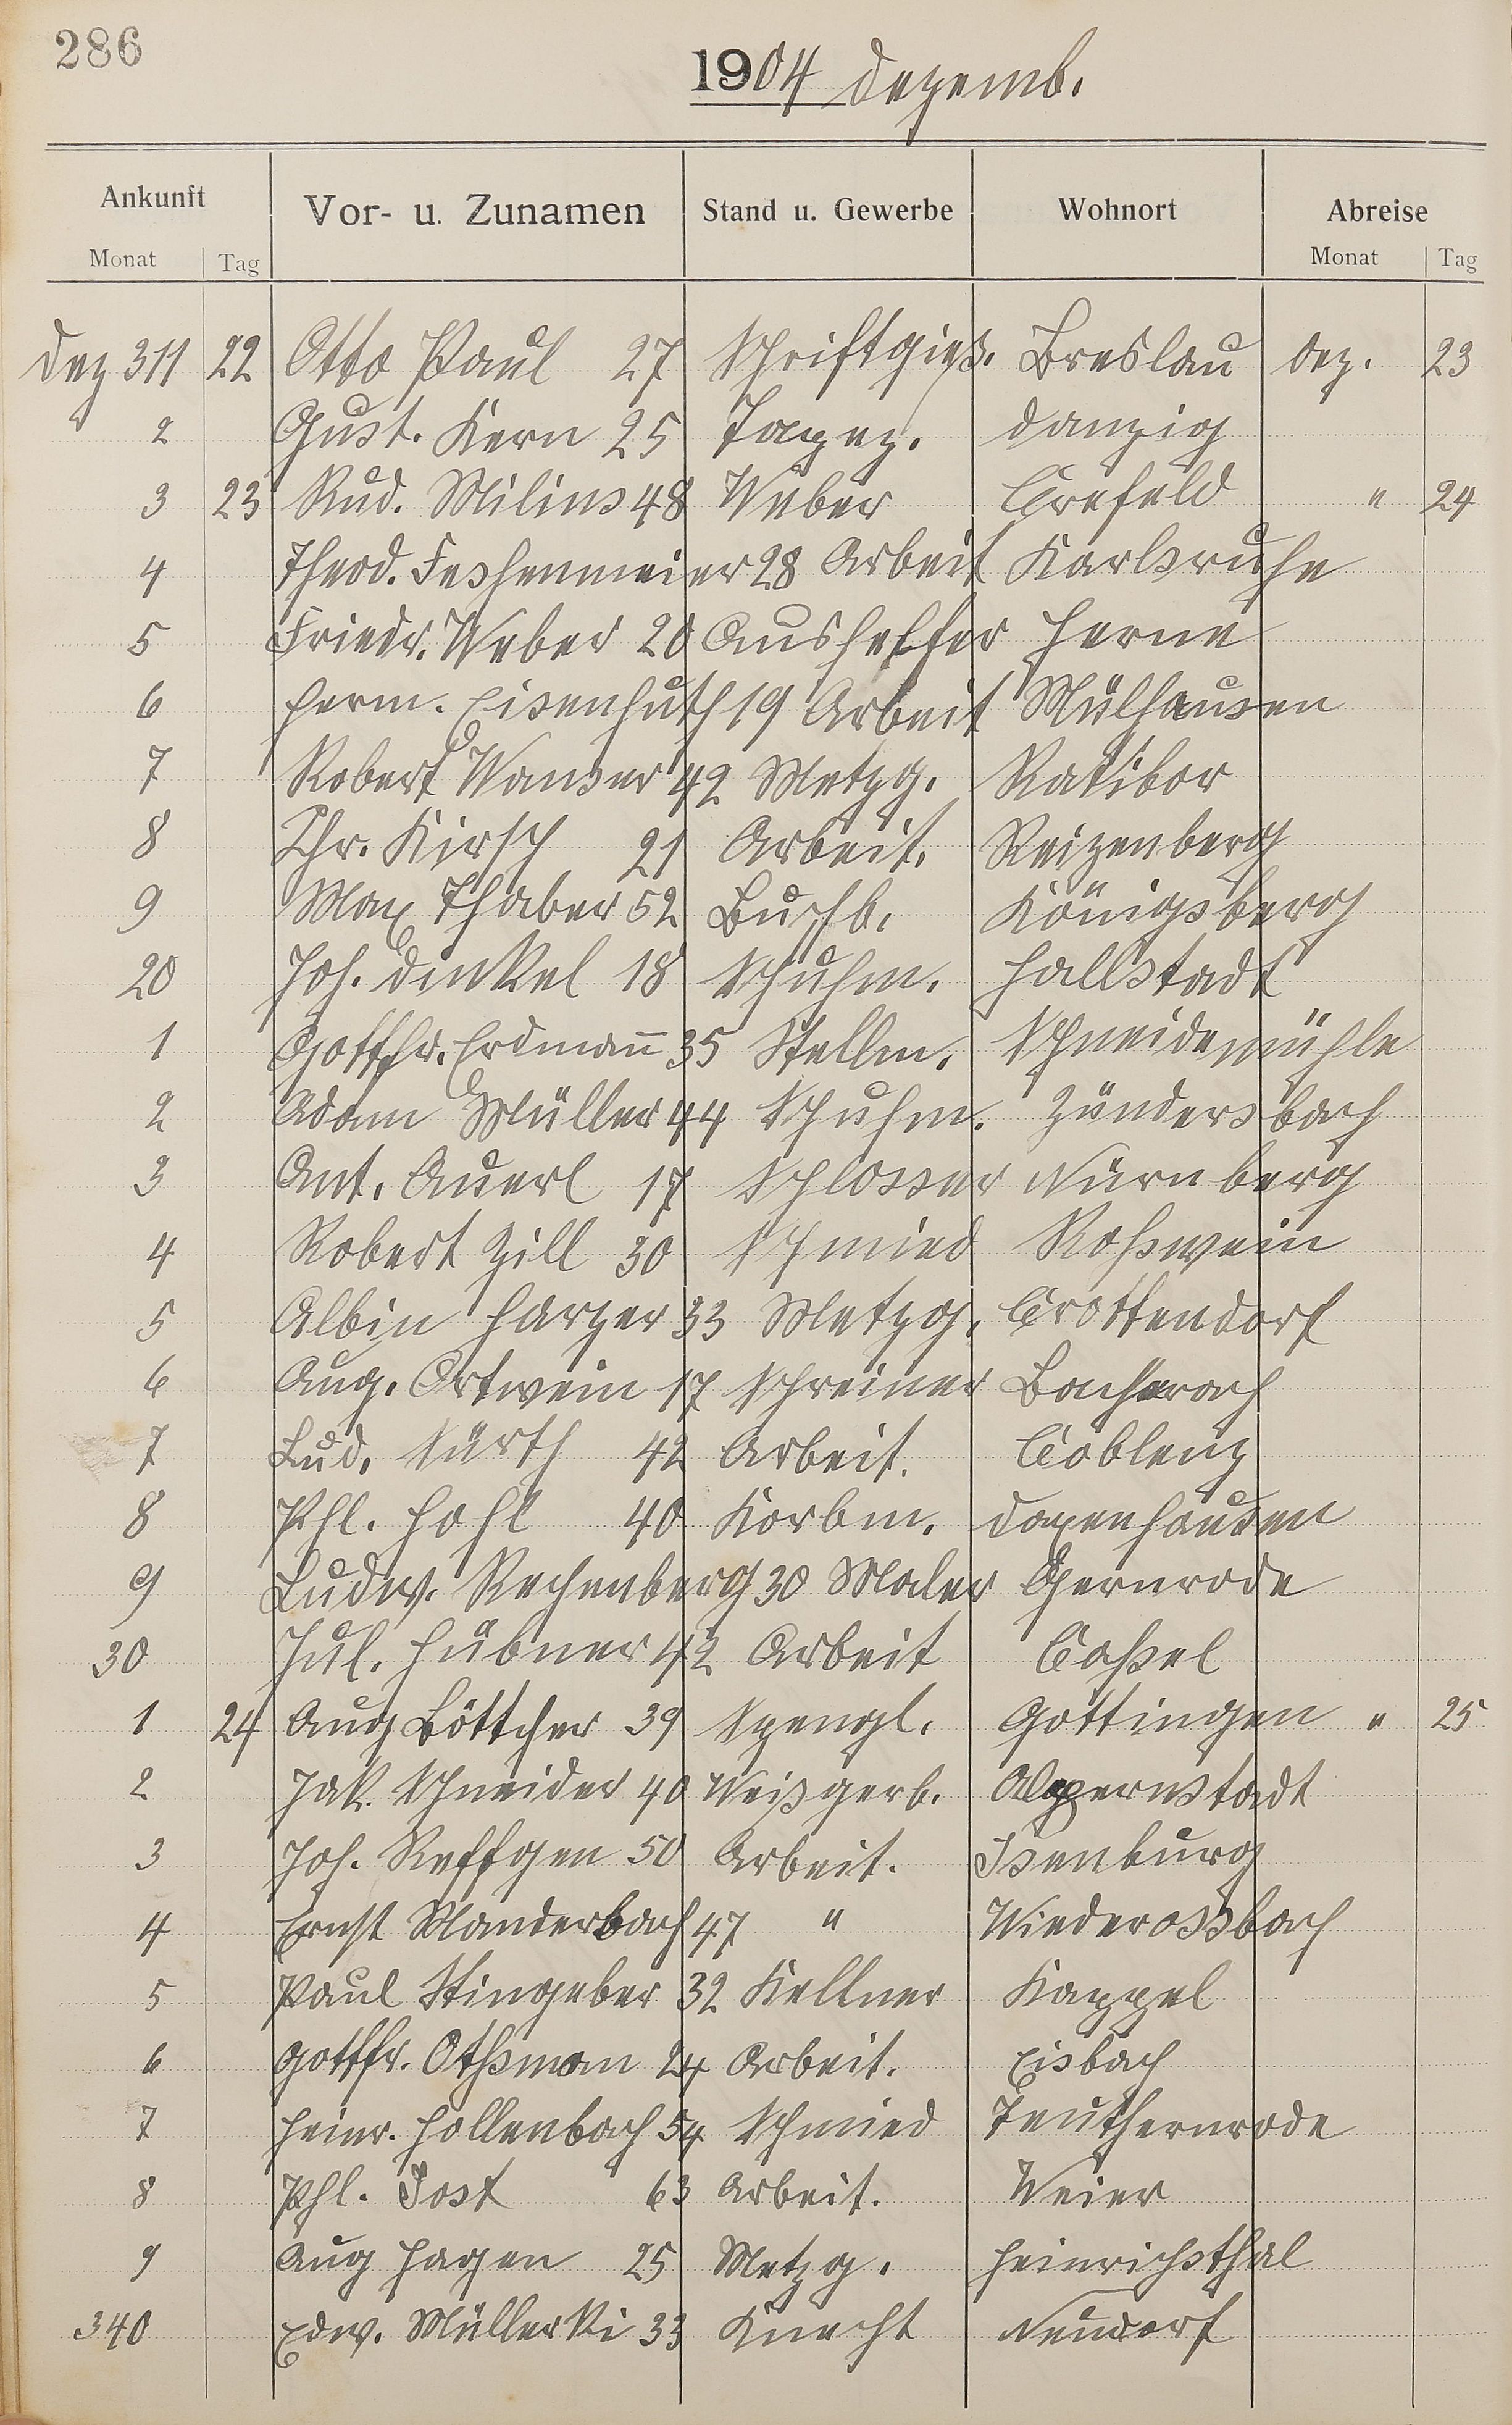 286
1904 Dezemb.
Ankunft Vor- u. Zunamen Stand u. Gewerbe Wohnort Abreise
Monat Tag Monat Tag
Dez 311 22 Otto Paul 27 Schriftgieß. Breslau Dez. 23
2 Gust. Kern 25 Tapez. Danzig
3 23 Rud. Milius 48 Weber Crefeld " 24
4 Theod. Feshenmeier 28 Arbeit Karlsruhe
5 Friedr. Weber 20 Aushelfer Herne
6 Herm. Eisenhuth 19 Arbeit Mülhausen
7 Robert Wanser 42 Metzg. Ratibor
8 Chr. Kirsch 21 Arbeit. Reizenberg
9 Max Thaber 52 Buchb. Königsberg
20 Joh. Dinkel 18 Schuhm. Hallstadt
1 Gottfr. Erdman̅ 35 Stellm. Schneidemühle
2 Adam Müller 44 Schuhm. Zündersbach
3 Ant. Auerl 17 Schlosser Nürnberg
4 Robert Zill 30 Schmied Roßwein
5 Albin Harzer 33 Metzg. Crottendorf
6 Aug. Ortwein 17 Schreiner Bacherach
7 Lud. Nürth 42 Arbeit. Coblenz
8 Phl. Hohl 40 Korbm. Daxenhausen
9 Ludw. Rechenberg 30 Maler Gernrode
30 Jul. Hübner 42 Arbeit Caßel
1 24 Aug Böttcher 39 Spengl. Göttingen " 25
2 Jak. Schneider 40 Weißgerb. Alpernstadt
3 Joh. Reffgen 50 Arbeit. Isenburg
4 Ernst Manderbach 47 " Wiederossbach
5 Paul Stingeber 32 Kellner Kappel
6 Gottfr. Othsman 24 Arbeit. Eisbach
7 Heinr. Hollenbach 54 Schmied Teuthernrode
8 Phl. Jost 63 Arbeit. Weier
9 Aug Hagen 25 Metzg. Heinrichsthal
340 Edw. Müllerki 33 Knecht Neudorf